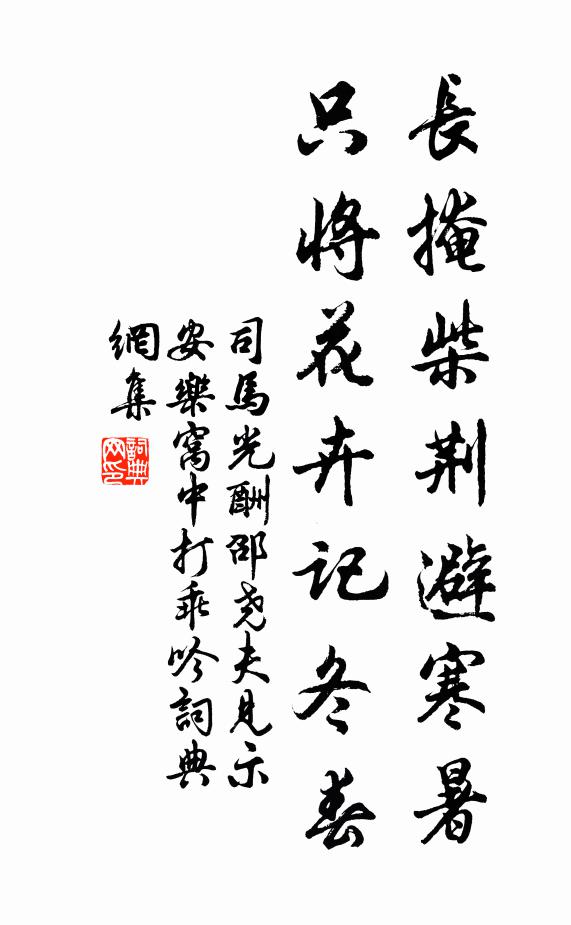 長掩柴荆避寒暑
只將花卉記冬春
司馬光酬邵尧夫見示
安樂窩中打乖吟詞典
網集
詞典網印